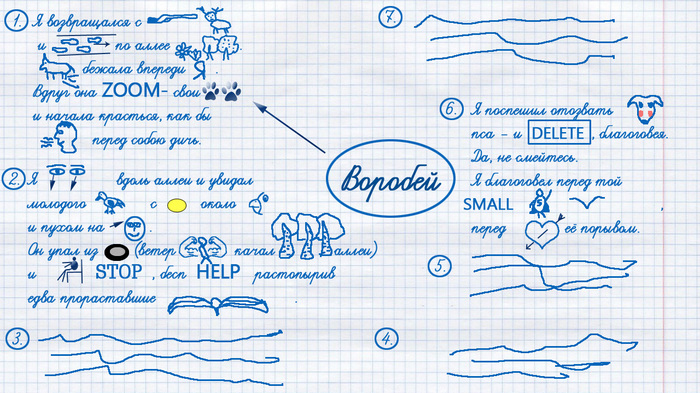 1.
Я возвращался с
и по аллее .
бежала впереди .
Вдруг она ZOOM- свои
и начала красться, как бы
перед собою дичь.
2.
Я вдоль аллеи и увидал
молодого с около
и пухом на .
Он упал из (ветер качал аллеи)
и STOP , бесп HELP растопырив
едва прораставшие .
3.
Воробей
7.
6.
Я поспешил отозвать
пса – и DELETE , благоговея.
Да, не смейтесь.
Я благоговел перед той
SMALL S ,
перед её порывом.
5.
4.